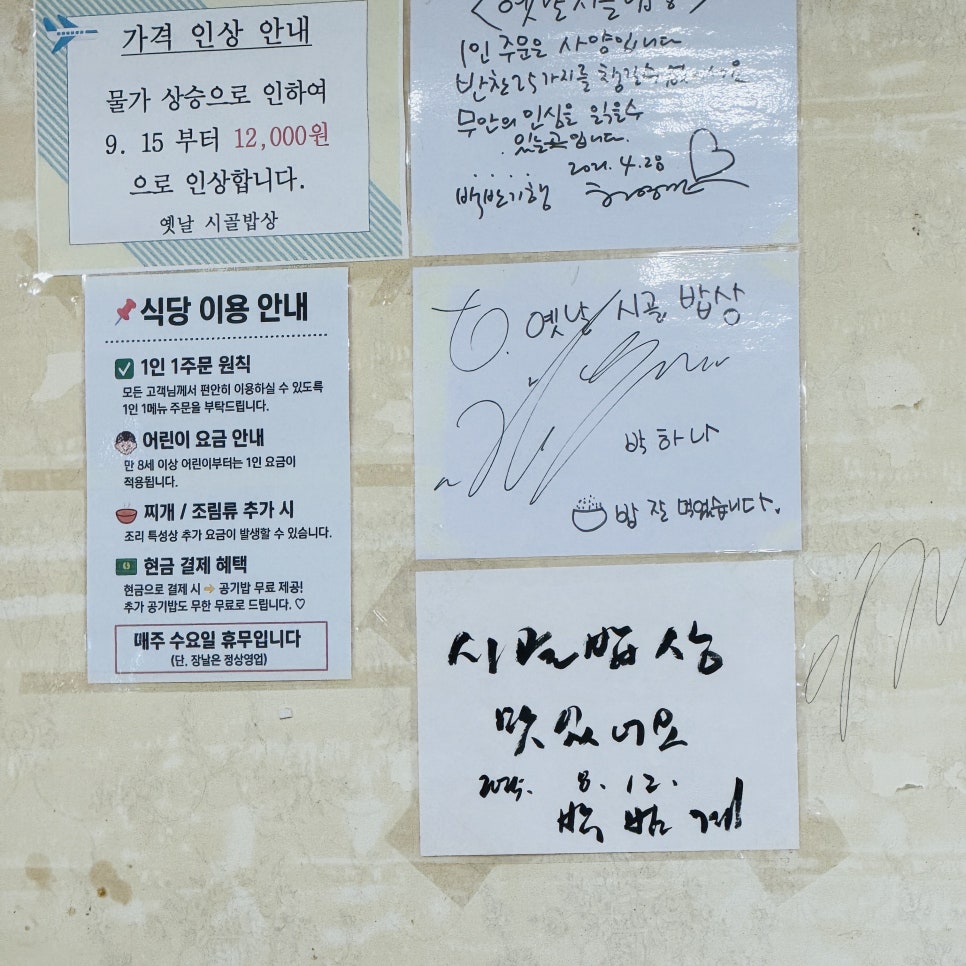 가격 인상 안내
물가 상승으로 인하여
9. 15 부터 12,000원
으로 인상합니다.
옛날 시골밥상
식당 이용 안내
1인 1주문 원칙
모든 고객님께서 편안히 이용하실 수 있도록
1인 1메뉴 주문을 부탁드립니다.
어린이 요금 안내
만 8세 이상 어린이부터는 1인 요금이
적용됩니다.
찌개 / 조림류 추가 시
조리 특성상 추가 요금이 발생할 수 있습니다.
현금 결제 혜택
현금으로 결제 시 → 공기밥 무료 제공!
추가 공기밥도 무한 무료로 드립니다. ♡
매주 수요일 휴무입니다
(단. 장날은 정상영업)
<옛날시골밥상>
1인 주문은 사양입니다
반찬 25가지를
무안의 인심을 읽을수
있는곳입니다.
2021. 4. 28
백반기행
to. 옛날 시골 밥상
박하나
밥 잘 먹었습니다.
시골밥상
맛있네요
2025. 8. 12.
박범계